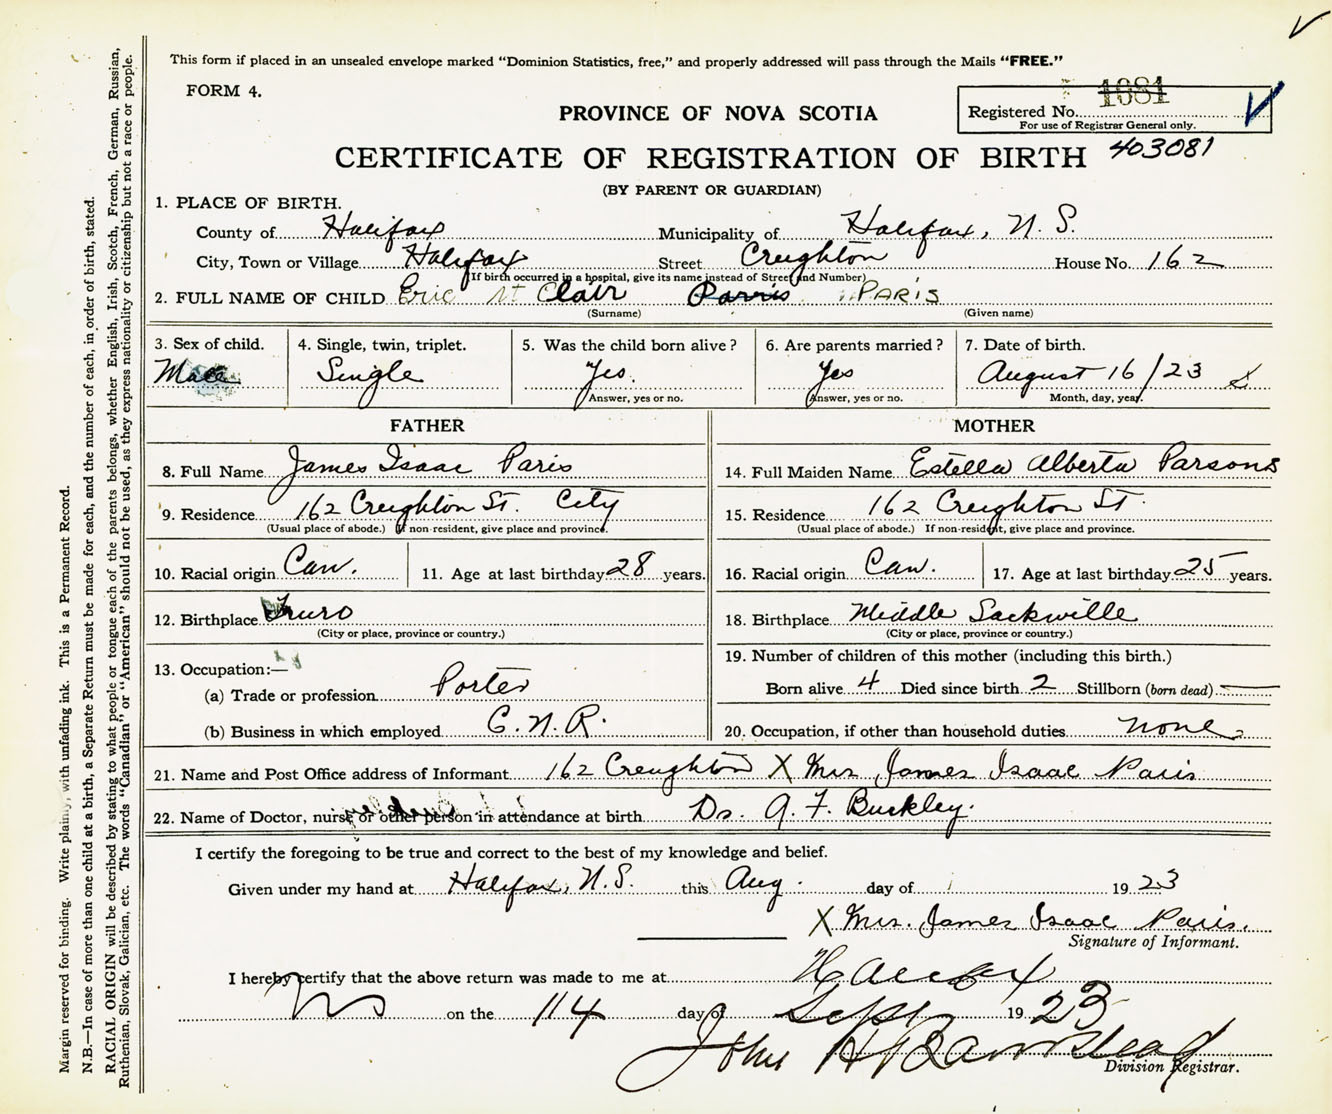 This form if placed in an unsealed envelope marked “Dominion Statistics, free,” and properly addressed will pass through the Mails “FREE.”
FORM 4.
1081
PROVINCE OF NOVA SCOTIA
Registered No.
For use of Registrar General only.
CERTIFICATE OF REGISTRATION OF BIRTH 403081
(BY PARENT OR GUARDIAN)
1. PLACE OF BIRTH.
County of Halifax Municipality of Halifax, N. S.
City, Town or Village Halifax Street Creighton House No. 162
(If birth occurred in a hospital, give its name instead of Street and Number)
2. FULL NAME OF CHILD Eric St Clair Parris PARIS
(Surname) (Given name)
3. Sex of child. 4. Single, twin, triplet. 5. Was the child born alive? 6. Are parents married? 7. Date of birth.
Male Single Yes. Yes August 16/23
Answer, yes or no. Answer, yes or no. Month, day, year.
FATHER MOTHER
8. Full Name James Isaac Paris 14. Full Maiden Name Estella Alberta Parsons
9. Residence 162 Creighton St. City 15. Residence 162 Creighton St.
(Usual place of abode.) If non-resident, give place and province. (Usual place of abode.) If non-resident, give place and province.
10. Racial origin Can. 11. Age at last birthday 28 years. 16. Racial origin Can. 17. Age at last birthday 25 years.
12. Birthplace Truro 18. Birthplace Middle Sackville
(City or place, province or country.) (City or place, province or country.)
13. Occupation:— 19. Number of children of this mother (including this birth.)
(a) Trade or profession Porter Born alive 4 Died since birth 2 Stillborn (born dead)
(b) Business in which employed C. N. R. 20. Occupation, if other than household duties none
21. Name and Post Office address of Informant 162 Creighton X Mrs James Isaac Paris
22. Name of Doctor, nurse or other person in attendance at birth Dr. A. F. Buckley.
I certify the foregoing to be true and correct to the best of my knowledge and belief.
Given under my hand at Halifax, N.S. this Aug. day of 1923
X Mrs. James Isaac Paris.
Signature of Informant.
I hereby certify that the above return was made to me at Halifax
NS on the 114 day of Sept 1923
John H Barnstead
Division Registrar.
Margin reserved for binding. Write plainly, with unfading ink. This is a Permanent Record.
N.B.—In case of more than one child at a birth, a Separate Return must be made for each, and the number of each, in order of birth, stated.
RACIAL ORIGIN will be described by stating to what people or tongue each of the parents belongs, whether English, Irish, Scotch, French, German, Russian,
Ruthenian, Slovak, Galician, etc. The words “Canadian” or “American” should not be used, as they express nationality or citizenship but not a race or people.